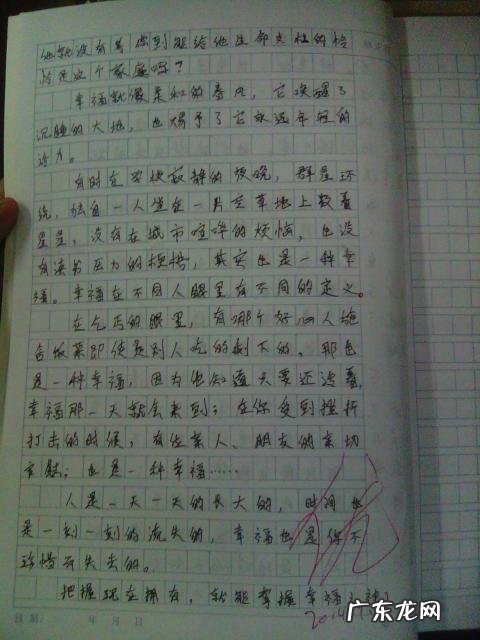 他就没有意识到能给他生命支柱的恰
恰是这个家庭吗？
幸福就像柔和的春风，它唤醒了
沉睡的大地，也赐予了它永远年轻的
活力。
有时在安快寂静的夜晚，群星环
绕，独自一人坐在一片空草地上数着
星星，没有在城市喧哗的烦恼，也没
有读书压力的梗塞，其实也是一种幸
福。幸福在不同人眼里有不同的定义。
在乞丐的眼里，有哪个好心人施
舍饭菜即使是别人吃的剩下的，那也
是一种幸福，因为他知道天要还活着，
幸福那一天就会来到；在你受到挫折
打击的时候，有位亲人、朋友的亲切
安慰；也是一种幸福……
人是一天一天的长大的，时间也
是一刻一刻的流失的，幸福也是你不
珍惜而失去的。
把握现在拥有，就能掌握幸福
年 月 日
广东龙网